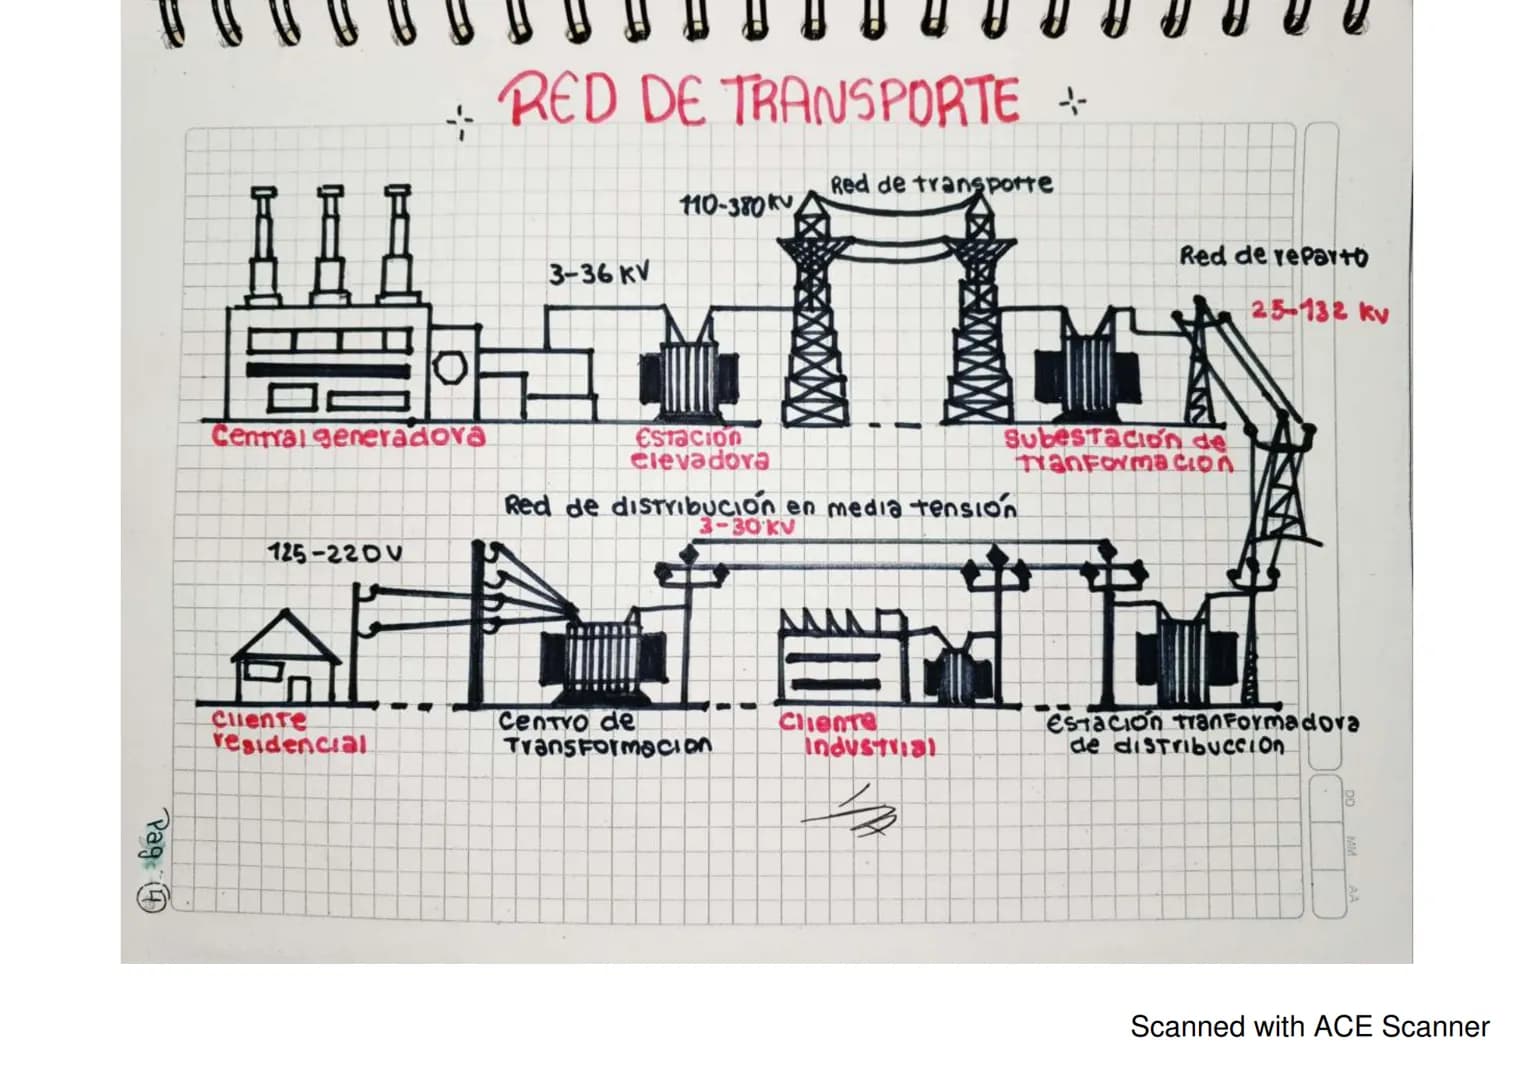 RED DE TRANSPORTE
Red de transporte
110-380 KV
3-36 KV
Red de reparto
25-132 KV
Central generadora
Estación
elevadora
Subestación de
Tranformación
Red de distribución en media tensión
3-30 KV
125-220V
Cliente
residencial
Centro de
Transformacion
Cliente
industrial
Estación tranformadora
de distribuccion
Pag: 14
DD MM AA
Scanned with ACE Scanner